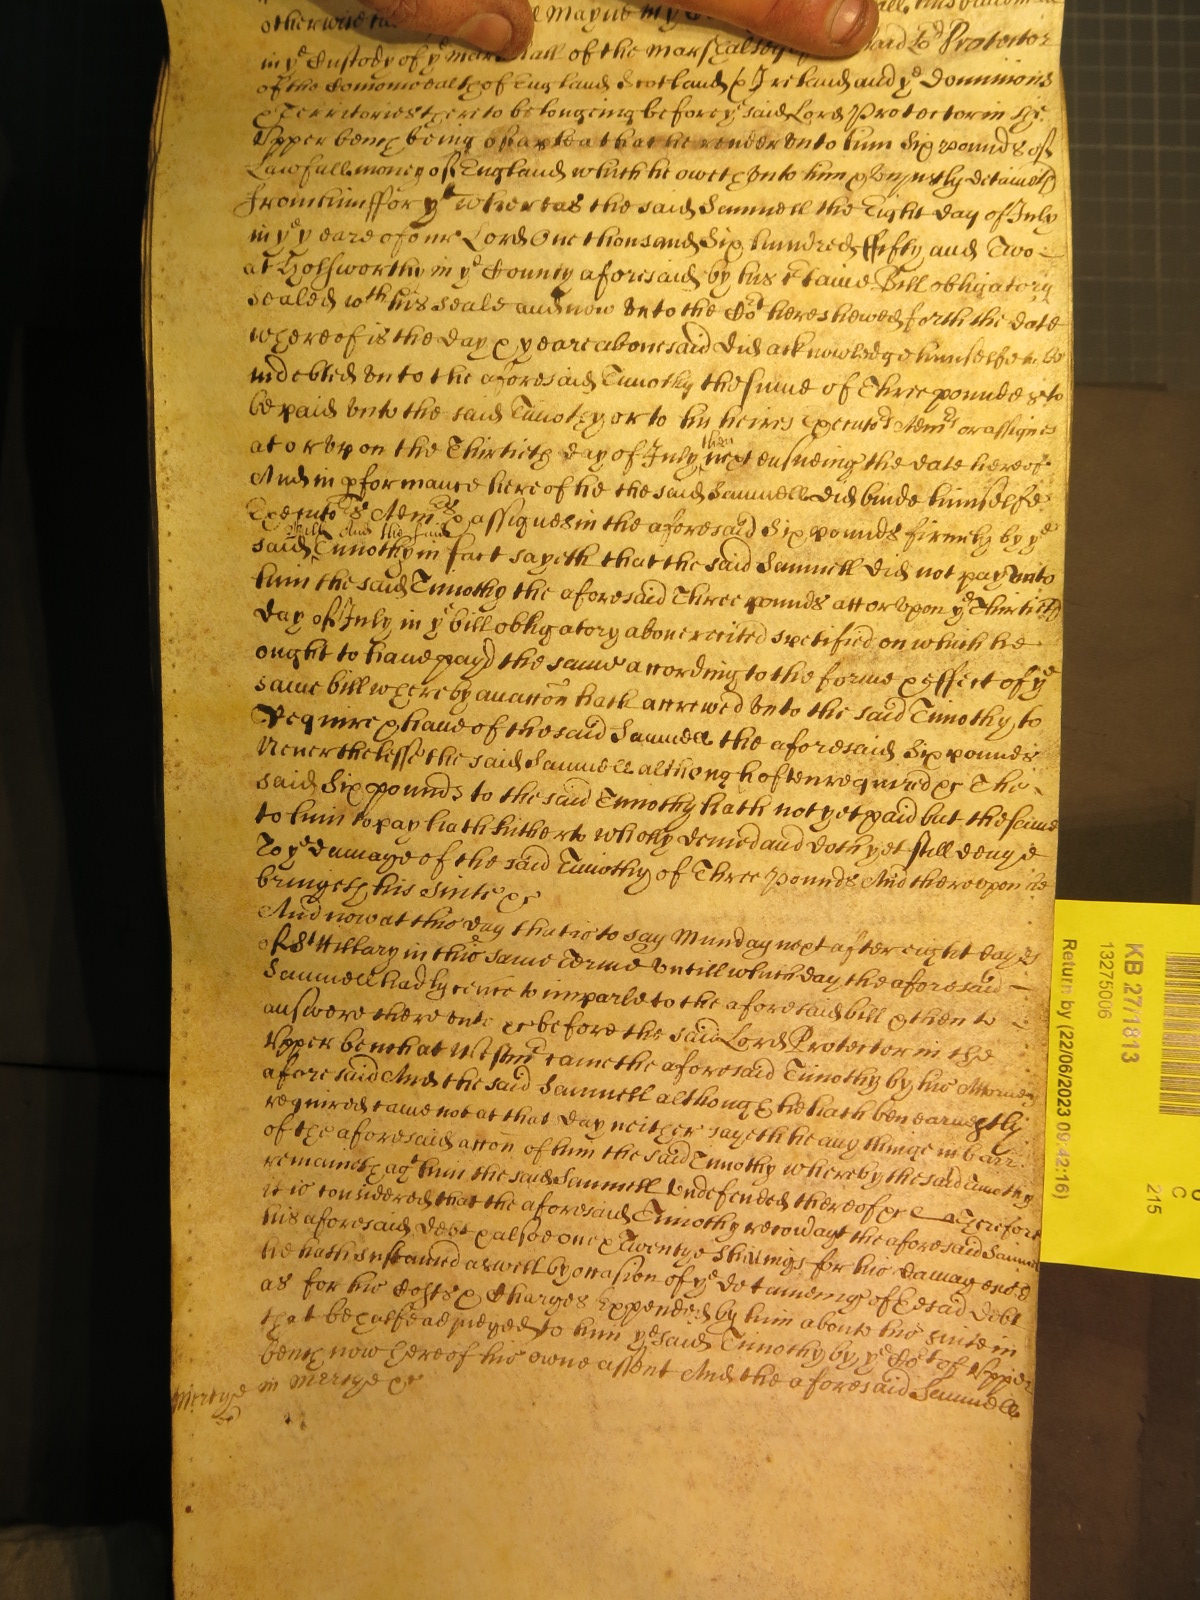 otherwise
in ye Custody of ye Marshall of the Marshalsey said Lo: Protector
of the Comonwealth of England Scotland & Ireland and ye Dominions
& Territories thereto belonging before ye said Lord Protector in the
Upper bench being of a plea that he render unto him Six pounds of
Lawfull money of England which he oweth unto him & unjustly detaineth
from him ffor yt whereas the said Samuell the Eight day of July
in ye yeare of our Lord One thousand Six hundred ffifty and Two
at Holsworthy in ye County aforesaid by his certaine Bill obligatory
Sealed wth his Seale and now unto the Cot here shewed forth the date
whereof is the day & yeare abovesaid did acknowledge himselfe to be
indebted unto the aforesaid Timothy the sume of Three pounds to
be paid unto the said Timothy or to his heires Executors Admrs or assignes
at or upon the Thirtieth day of July then next ensueing the date hereof
And in pformance hereof he the said Samuell did binde himselfe
Executors Admrs & assignes in the aforesaid Six pounds firmely by ye
said Bill And the said Timothy in fact sayeth that the said Samuell did not pay unto
him the said Timothy the aforesaid Three pounds att or upon ye Thirtieth
day of July in ye bill obligatory above recited specified on which he
ought to have payd the same according to the forme & effect of ye
same bill whereby an accon hath accrewed unto the said Timothy to
Require & have of the said Samuell the aforesaid Six pounds
Neverthelesse the said Samuell although often required &c The
said Six pounds to the said Timothy hath not yet paid but the same
to him to pay hath hitherto wholly denied and doth yet still denye
To ye damage of the said Timothy of Three pounds And thereupon he
bringeth his Suite &c
And now at this day that is to say Munday next after eight dayes
of St Hillary in this same Terme untill which day the aforesaid
Samuell had lycence to imparle to the aforesaid bill & then to
answere thereunto &c before the said Lord Protector in the
Upper bench at Westmr came the aforesaid Timothy by his Attorney
aforesaid And the said Samuell although he hath ben earnestly
required came not at that day neither sayeth he any thinge in barr
of the aforesaid accon of him the said Timothy whereby the said Timothy
remaineth agt him the said Samuell Undefended thereof &c Therefore
it is considered that the aforesaid Timothy recov agt the aforesaid Samuell
his aforesaid debt & alsoe one & Twentye Shillings for his damages wch
he hath Sustained aswell by occasion of ye detaineing of the said debt
as for his Costs & Charges Expended by him about his suite in
that behalfe adjudged to him ye said Timothy by ye Cot of Upper
bench now here of his owne assent And the aforesaid Samuell
in Mercye &c
Mercye
KB 27/1813
13275006
Return by (22/06/2023 09:42:16)
C
215